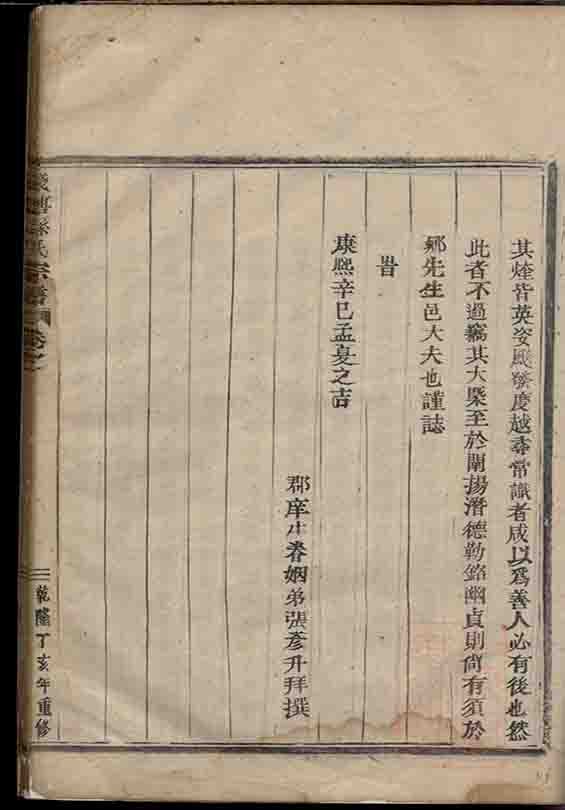 其烓皆英姿颷發度越尋常識者咸以爲善人必有後也然
此者不過竊其大槩至於闡揚潛德勒銘幽貞則尚有須於
鄉先生邑大夫也謹誌
旹
康熙辛巳孟夏之吉
郡庠生眷姻弟張彥升拜撰
孫氏宗譜 卷之
乾隆丁亥年重修